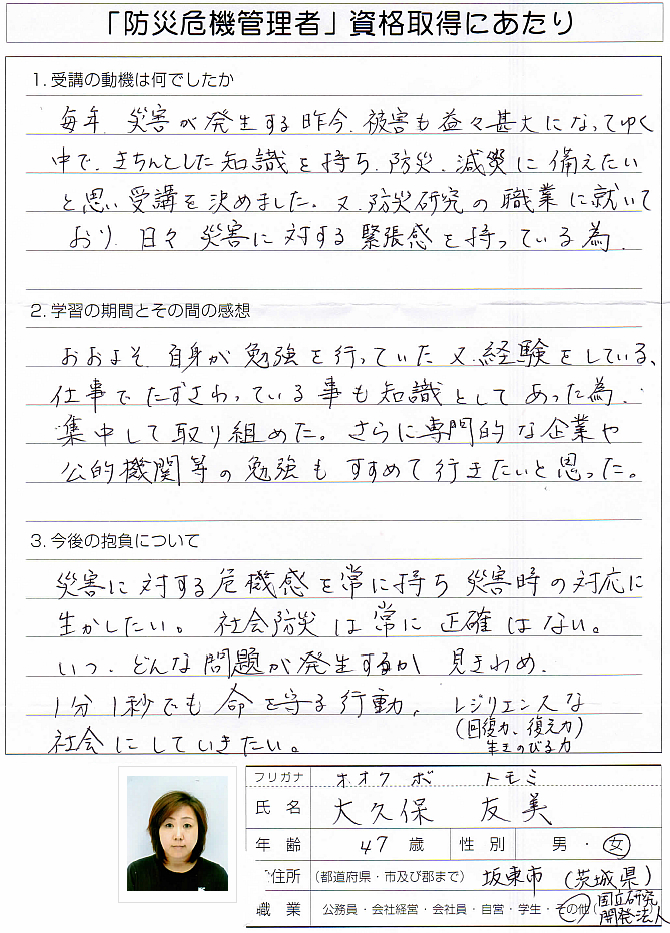 「防災危機管理者」資格取得にあたり
1. 受講の動機は何でしたか
毎年、災害が発生する昨今、被害も益々甚大になってゆく
中で、きちんとした知識を持ち、防災、減災に備えたい
と思い受講を決めました。又、防災研究の職業に就いて
おり、日々災害に対する緊張感を持っている為、
2. 学習の期間とその間の感想
おおよそ、自身が勉強を行っていた又、経験をしている、
仕事でたずさわっている事も知識としてあった為、
集中して取り組めた。さらに専門的な企業や
公的機関等の勉強もすすめて行きたいと思った。
3. 今後の抱負について
災害に対する危機感を常に持ち災害時の対応に
生かしたい。社会防災は常に正確はない。
いつ、どんな問題が発生するか見きわめ、
1分1秒でも命を守る行動、レジリエンスな
(回復力、復元力)
生きのびる力
社会にしていきたい。
フリガナ オオクボ トモミ
氏名 大久保 友美
年齢 47 歳 性別 男・女
住所 (都道府県・市及び郡まで) 坂東市(茨城県)
職業 公務員・会社経営・会社員・自営・学生・その他( 国立研究
開発法人